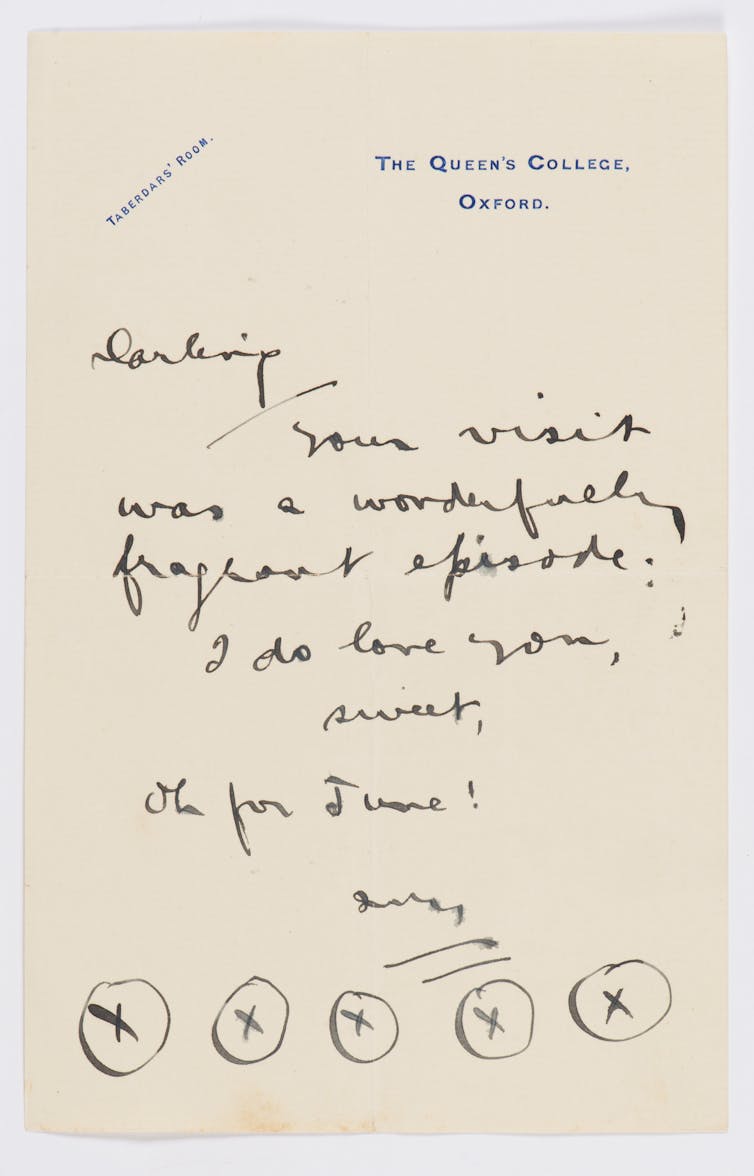 TABERDARS' ROOM.
THE QUEEN'S COLLEGE,
OXFORD.
Darling
Your visit
was a wonderfully
fragrant episode.
I do love you,
sweet,
Oh for June!
x x x x x